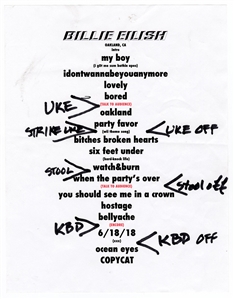 BILLIE EILISH
OAKLAND, CA
intro
my boy
idontwannabeyouanymore
lovely
bored
(TALK TO AUDIENCE)
UKE
oakland
party favor
STRIKE UKE
UKE OFF
bitches broken hearts
six feet under
STOOL
watch&burn
when the party's over
(TALK TO AUDIENCE)
STOOL off
you should see me in a crown
hostage
bellyache
(ENCORE)
KBD
6/18/18
KBD OFF
ocean eyes
COPYCAT